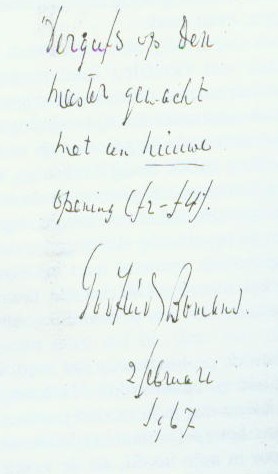 "Vergeefs op den
meester gewacht
met een nieuwe
opening (f2-f4)".
Godfried Bomans.
2 februari
1967